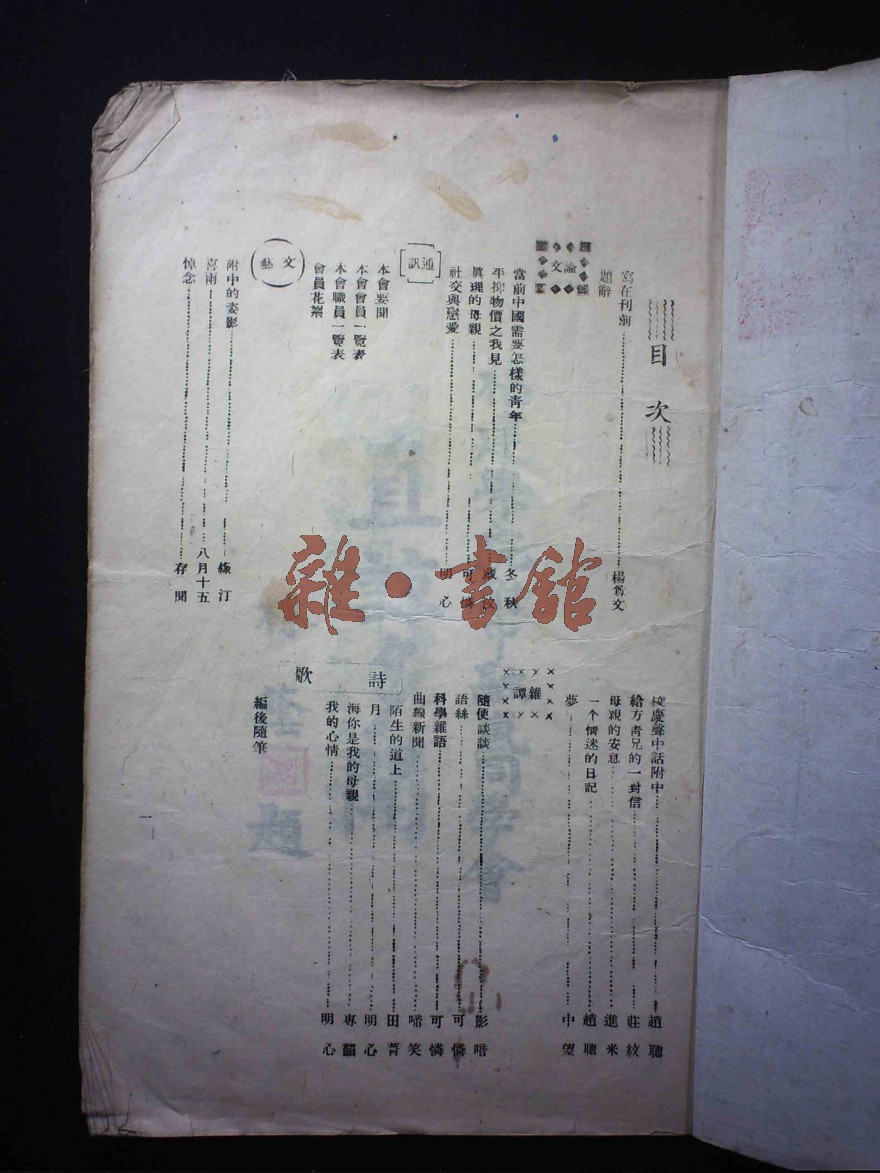 目次
寫在刊前 楊舊文
題辭
論文
當前中國需要怎樣的青年 冬秋
平抑物價之我見
眞理的母親 可憐
社交與戀愛 明心
通訊
本會要聞
本會會員一覽表
本會職員一覽表
會員花絮
文藝
附中的姿影 綠汀
喜雨 八月十五
悼念 存聞
校慶聲中話附中 趙聰
給方靑兄的一封信 莊紋
母親的安息 進米
一个情迷的日記 趙聰
夢 中望
雜譚
隨便談談 影喑
語絲 可憐
科學雜語 可憐
曲線新聞 啼笑
詩歌
陌生的道上 田菁
月 明心
海你是我的母親 專韻
我的心情 明心
編後隨筆
雜·書館
同學會
題